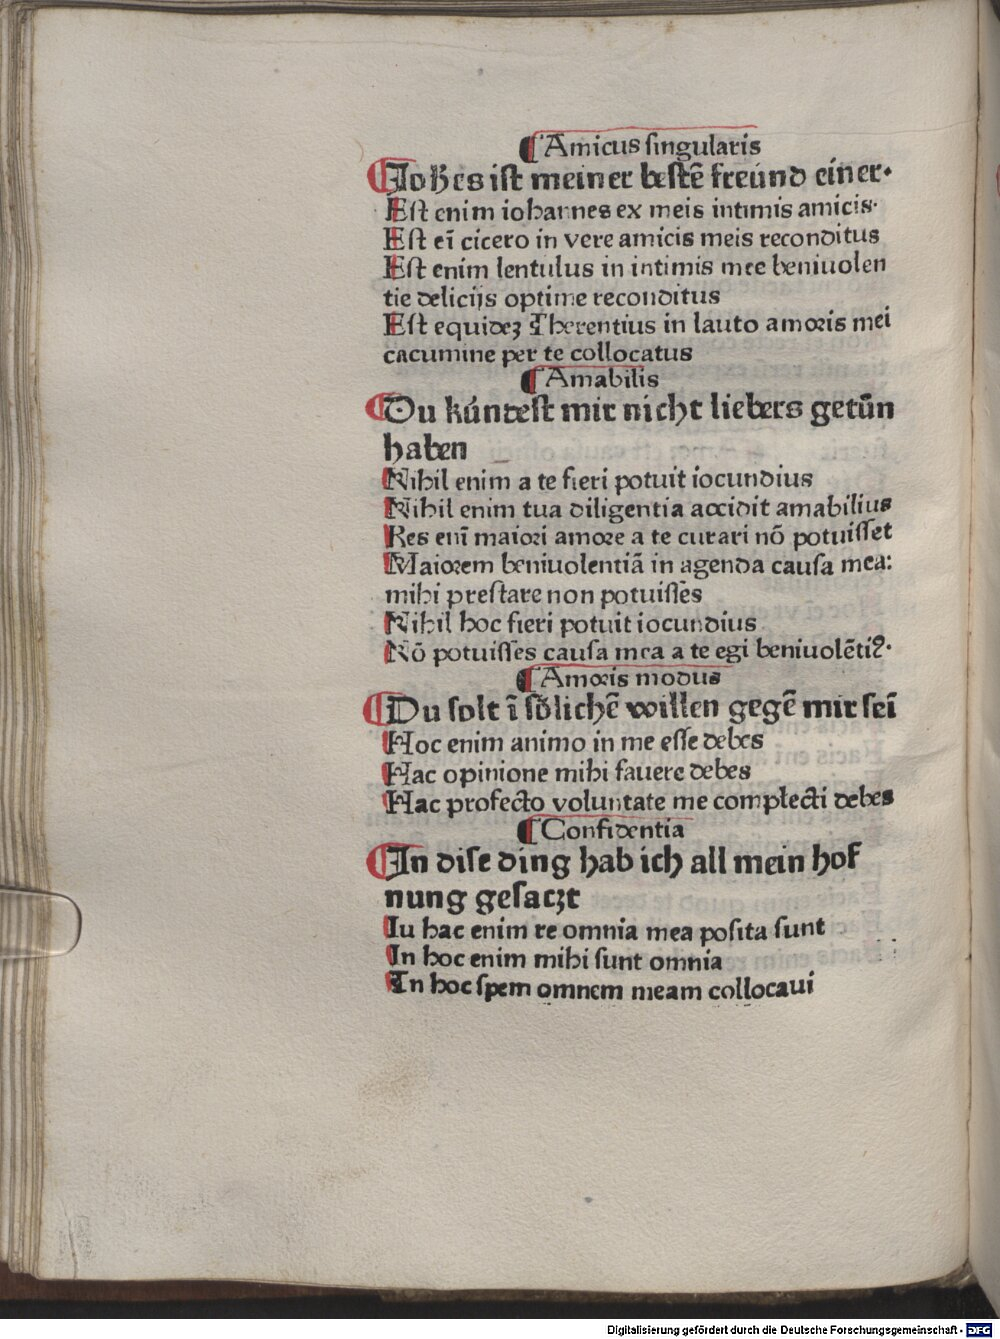 ¶ Amicus singularis
¶ Johēs ist meiner bestē freúnd einer·
Est enim iohannes ex meis intimis amicis·
Est eī cicero in vere amicis meis reconditus
Est enim lentulus in intimis mee beniuolen
tie delicijs optime reconditus
Est equideʒ Therentius in lauto amoris mei
cacumine per te collocatus
¶ Amabilis
¶ Du kúndest mir nicht liebers getūn
haben
Nihil enim a te fieri potuit iocundius
Nihil enim tua diligentia accidit amabilius
Res enī maiori amore a te curari nō potuisset
Maiorem beniuolentiā in agenda causa mea:
mihi prestare non potuisses
Nihil hoc fieri potuit iocundius
Nō potuisses causa mea a te egi beniuolētiꝰ·
¶ Amoris modus
¶ Du solt ī sölichē willen gegē mir seī
Hoc enim animo in me esse debes
Hac opinione mihi fauere debes
Hac profecto voluntate me complecti debes
¶ Confidentia
¶ In dise ding hab ich all mein hof
nung gesaczt
Iu hac enim re omnia mea posita sunt
In hoc enim mihi sunt omnia
In hoc spem omnem meam collocaui
Digitalisierung gefördert durch die Deutsche Forschungsgemeinschaft - DFG